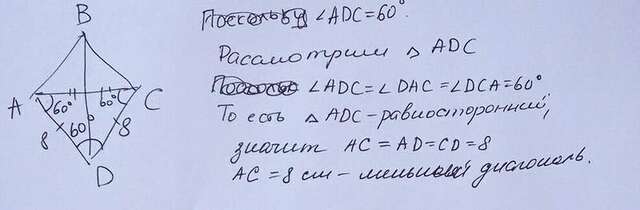 B
A
C
D
60°
60°
60°
8
8
Поскольку ∠ADC=60°.
Рассмотрим △ ADC
∠ADC=∠DAC=∠DCA=60°
То есть △ ADC-равносторонний,
значит AC=AD=CD=8
AC=8 см – меньшая диагональ.